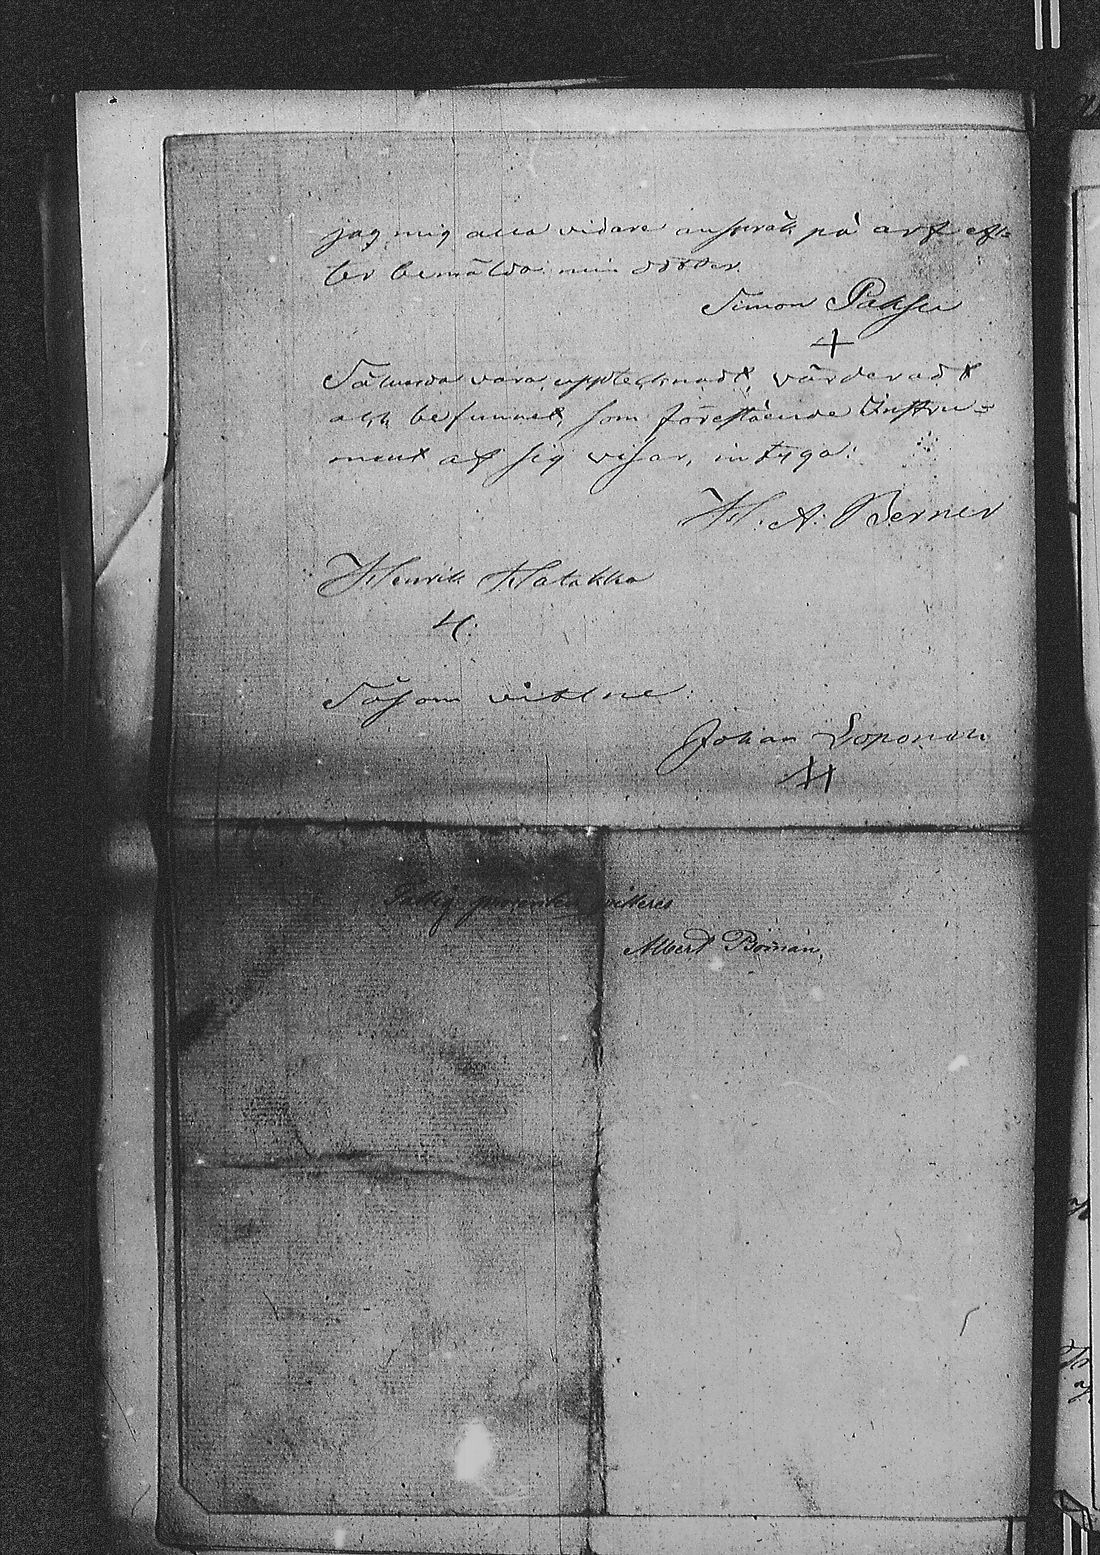 jag mig alla vidare anspråk på arf ef-
ter bemälda min dotter.
Simon Paksu
Sålunda vara upptecknadt, värderadt
och befunnet, som föreståénde Instru-
ment af sig visar, intyga:
H. A. Berner
Henrik Hatakka
Såsom vittne:
Johan Loponen
Fattig procenten qvitteres
Albert Boman.